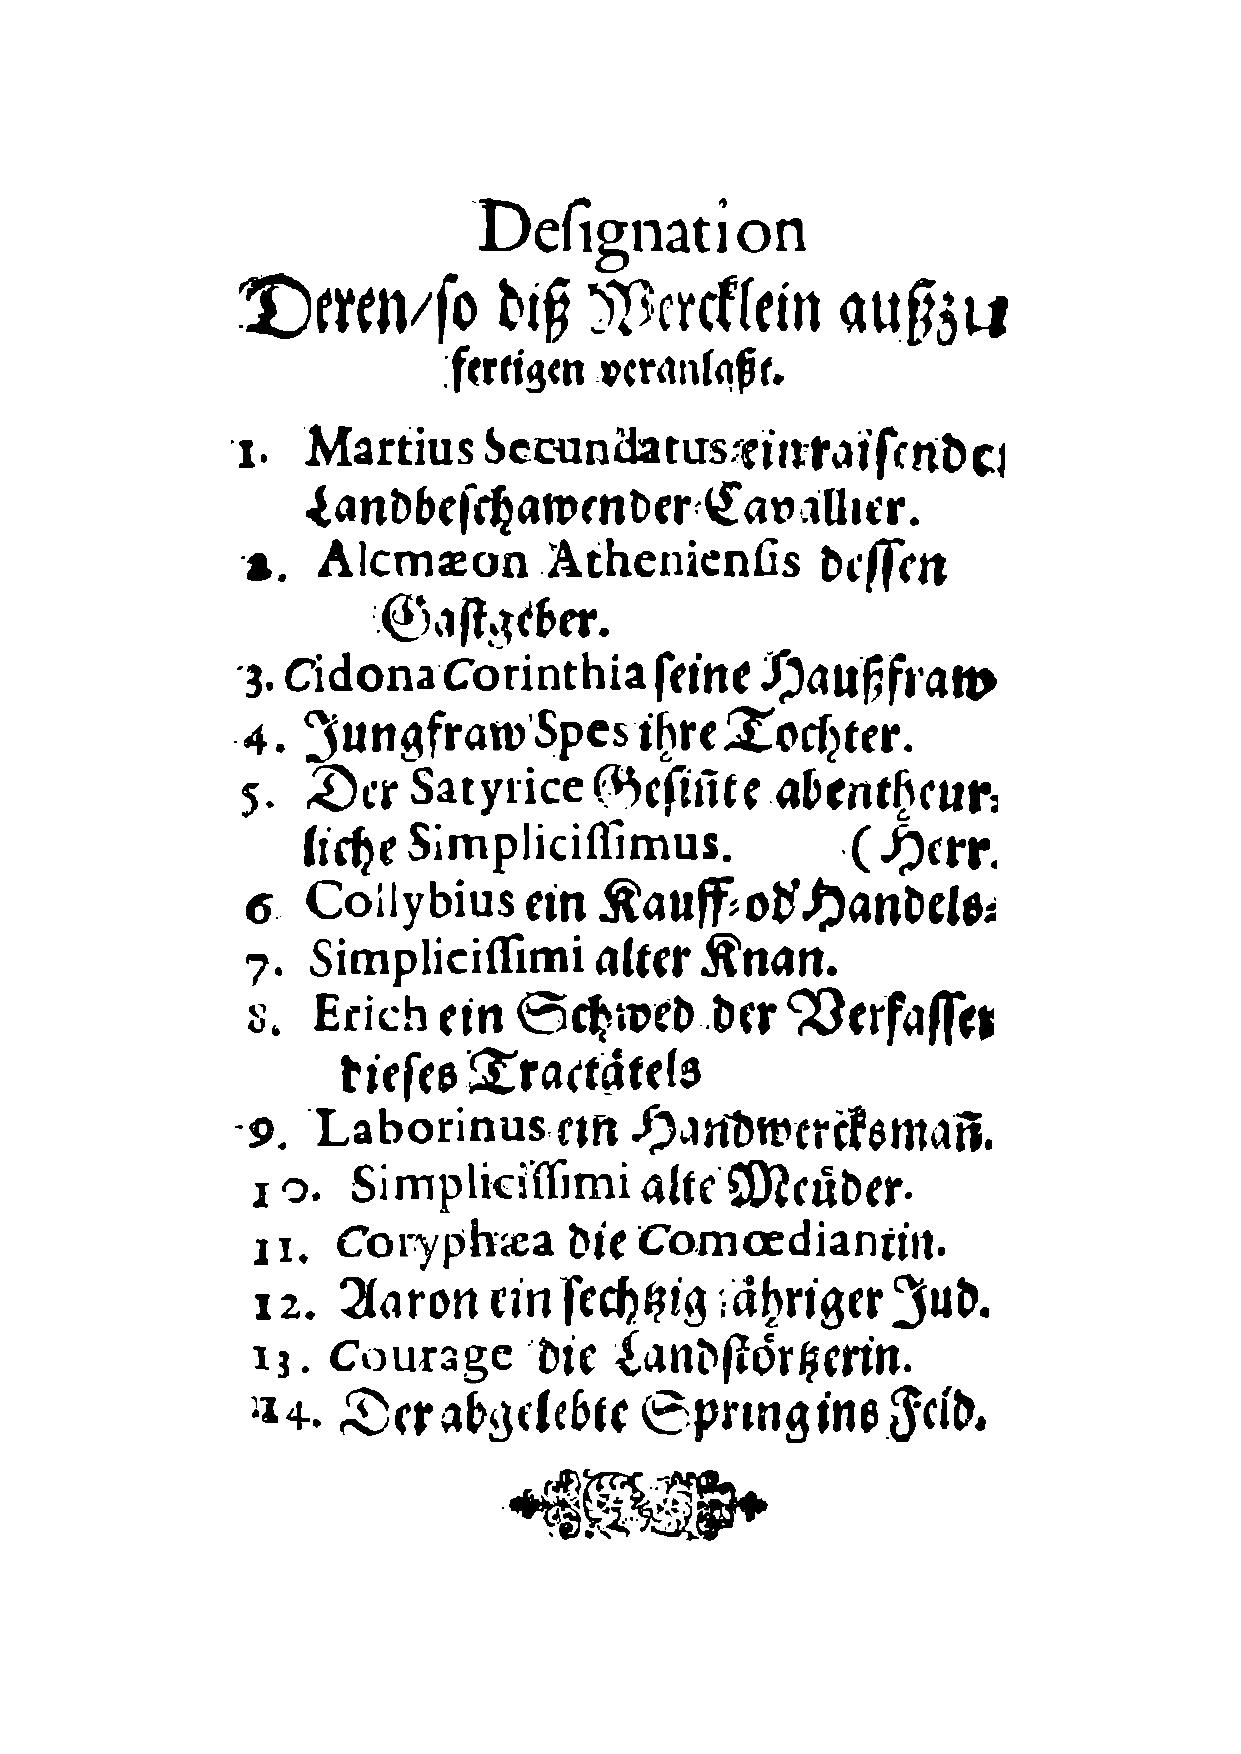 Deſignation
Deren/ſo diß Wercklein außzu
fertigen veranlaßt.
1. Martius Secundatus ein raiſender
Landbeſchawender Cavallier.
2. Alcmæon Athenienſis deſſen
Gaſtgeber.
3. Cidona Corinthia ſeine Haußfraw
4. Jungfraw Spes ihre Tochter.
5. Der Satyrice Geſiñte abentheur⸗
liche Simpliciſſimus. (Herr.
6 Collybius ein Kauff⸗od' Handels⸗
7. Simpliciſſimi alter Knan.
8. Erich ein Schwed der Verfaſſer
dieſes Tractåtels
9. Laborinus ein Handwercksmañ.
10. Simpliciſſimi alte Meuͤder.
11. Coryphæa die Comœdiantin.
12. Aaron ein ſechtzig jåhriger Jud.
13. Courage die Landſtoͤrtzerin.
14. Der abgelebte Springins Feld.